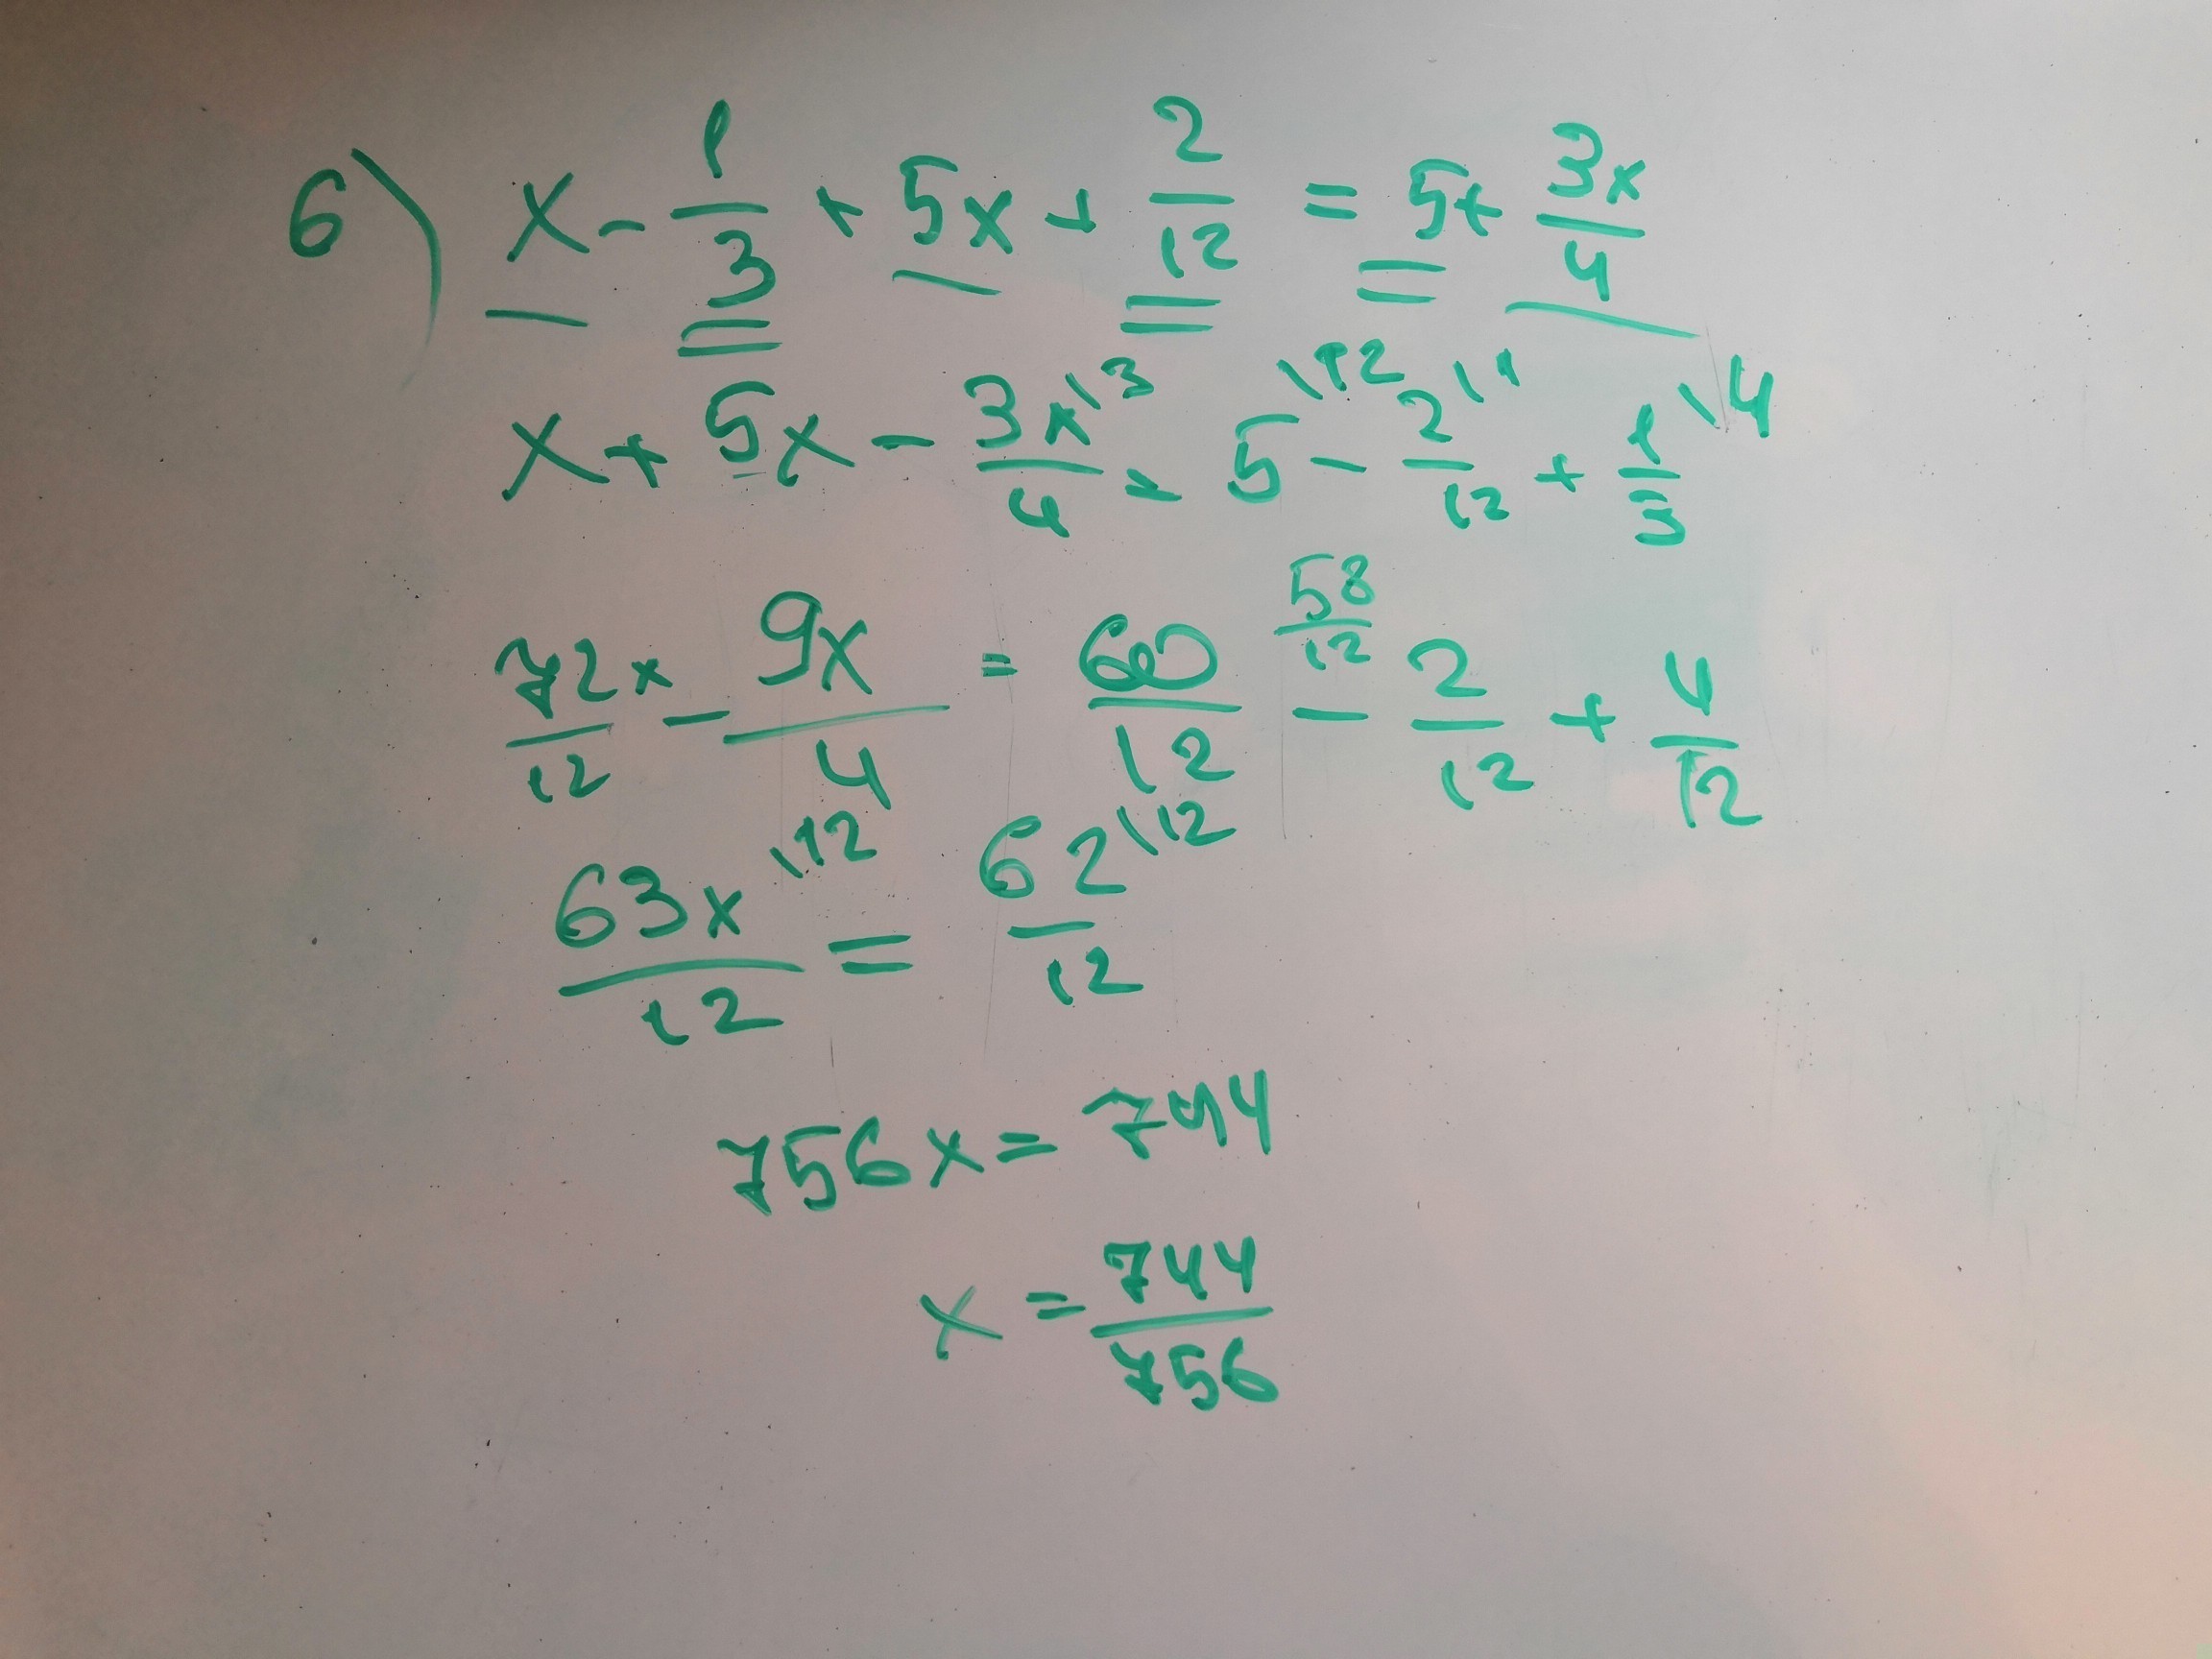 6) x - 1/3 + 5x + 2/12 = 5 + 3x/4
x + 5x - 3x\3/4 = 5\12 - 2\1/12 + 1\4/3
58/12
72x/12 - 9x/4 = 60/12 - 2/12 + 4/12
63x\12/12 = 62\12/12
756x = 744
x = 744/756